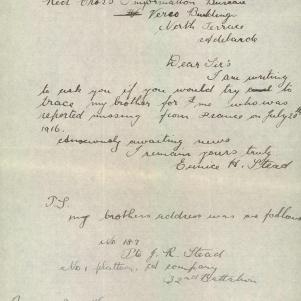 Red Cross Information Bureau
Verco Building
North Terrace
Adelaide
Dear Sir's
I am writing
to ask you if you would try to
trace my brother for me who was
reported missing from France on July 20th
1916.
anxiously awaiting news
I remain yours truly
Eunice H. Stead
P.S.
my brothers address was as follows
No 187
Pte J. R. Stead
No 1 platoon, company
32nd Battalion